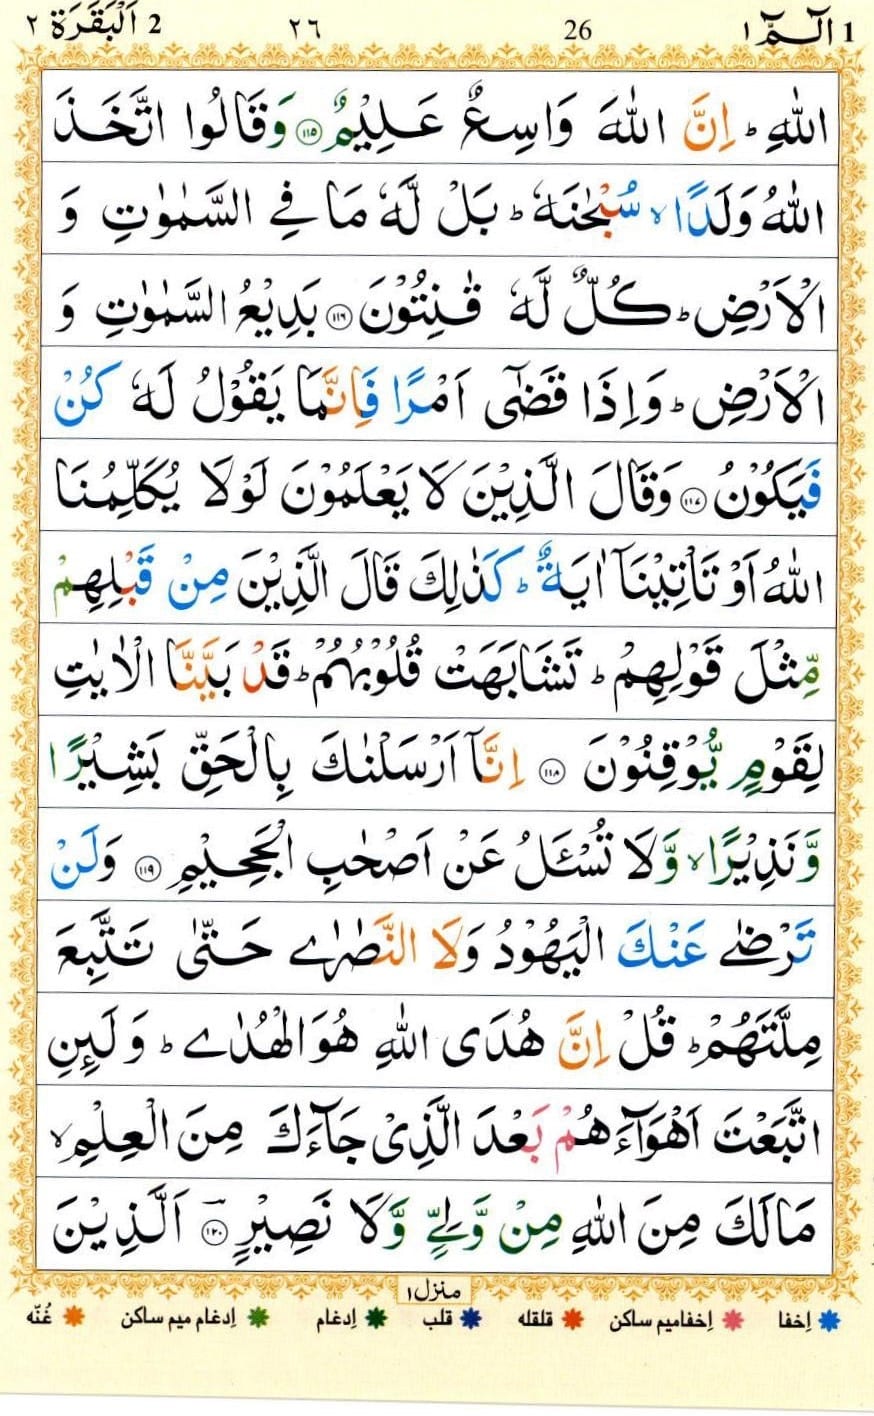 1 الٓمّٓ ١ 26 ٢٦ 2 اَلْبَقَرَة ٢
اللّٰهِؕ اِنَّ اللّٰهَ وَاسِعٌ عَلِيْمٌ ۝۱۱۵ وَقَالُوا اتَّخَذَ
اللّٰهُ وَلَدًاۙ سُبْحٰنَهٗؕ بَلْ لَّهٗ مَا فِي السَّمٰوٰتِ وَ
الْاَرْضِؕ كُلٌّ لَّهٗ قٰنِتُوْنَ ۝۱۱۶ بَدِيْعُ السَّمٰوٰتِ وَ
الْاَرْضِؕ وَاِذَا قَضٰٓى اَمْرًا فَاِنَّمَا يَقُوْلُ لَهٗ كُنْ
فَيَكُوْنُ ۝۱۱۷ وَقَالَ الَّذِيْنَ لَا يَعْلَمُوْنَ لَوْلَا يُكَلِّمُنَا
اللّٰهُ اَوْ تَاْتِيْنَاۤ اٰيَةٌؕ كَذٰلِكَ قَالَ الَّذِيْنَ مِنْ قَبْلِهِمْ
مِّثْلَ قَوْلِهِمْؕ تَشَابَهَتْ قُلُوْبُهُمْؕ قَدْ بَيَّنَّا الْاٰيٰتِ
لِقَوْمٍ يُّوْقِنُوْنَ ۝۱۱۸ اِنَّاۤ اَرْسَلْنٰكَ بِالْحَقِّ بَشِيْرًا
وَّنَذِيْرًاۙ وَّلَا تُسْـَٔلُ عَنْ اَصْحٰبِ الْجَحِيْمِ ۝۱۱۹ وَلَنْ
تَرْضٰى عَنْكَ الْيَهُوْدُ وَلَا النَّصٰرٰى حَتّٰى تَتَّبِعَ
مِلَّتَهُمْؕ قُلْ اِنَّ هُدَى اللّٰهِ هُوَ الْهُدٰىؕ وَلَىِٕنِ
اتَّبَعْتَ اَهْوَآءَهُمْ بَعْدَ الَّذِيْ جَآءَكَ مِنَ الْعِلْمِۙ
مَا لَكَ مِنَ اللّٰهِ مِنْ وَّلِيٍّ وَّلَا نَصِيْرٍ ۝۱۲۰ اَلَّذِيْنَ
منزل ١
اِخفا اِخفامیم ساکن قلقله قلب اِدغام اِدغام میم ساکن غُنّه